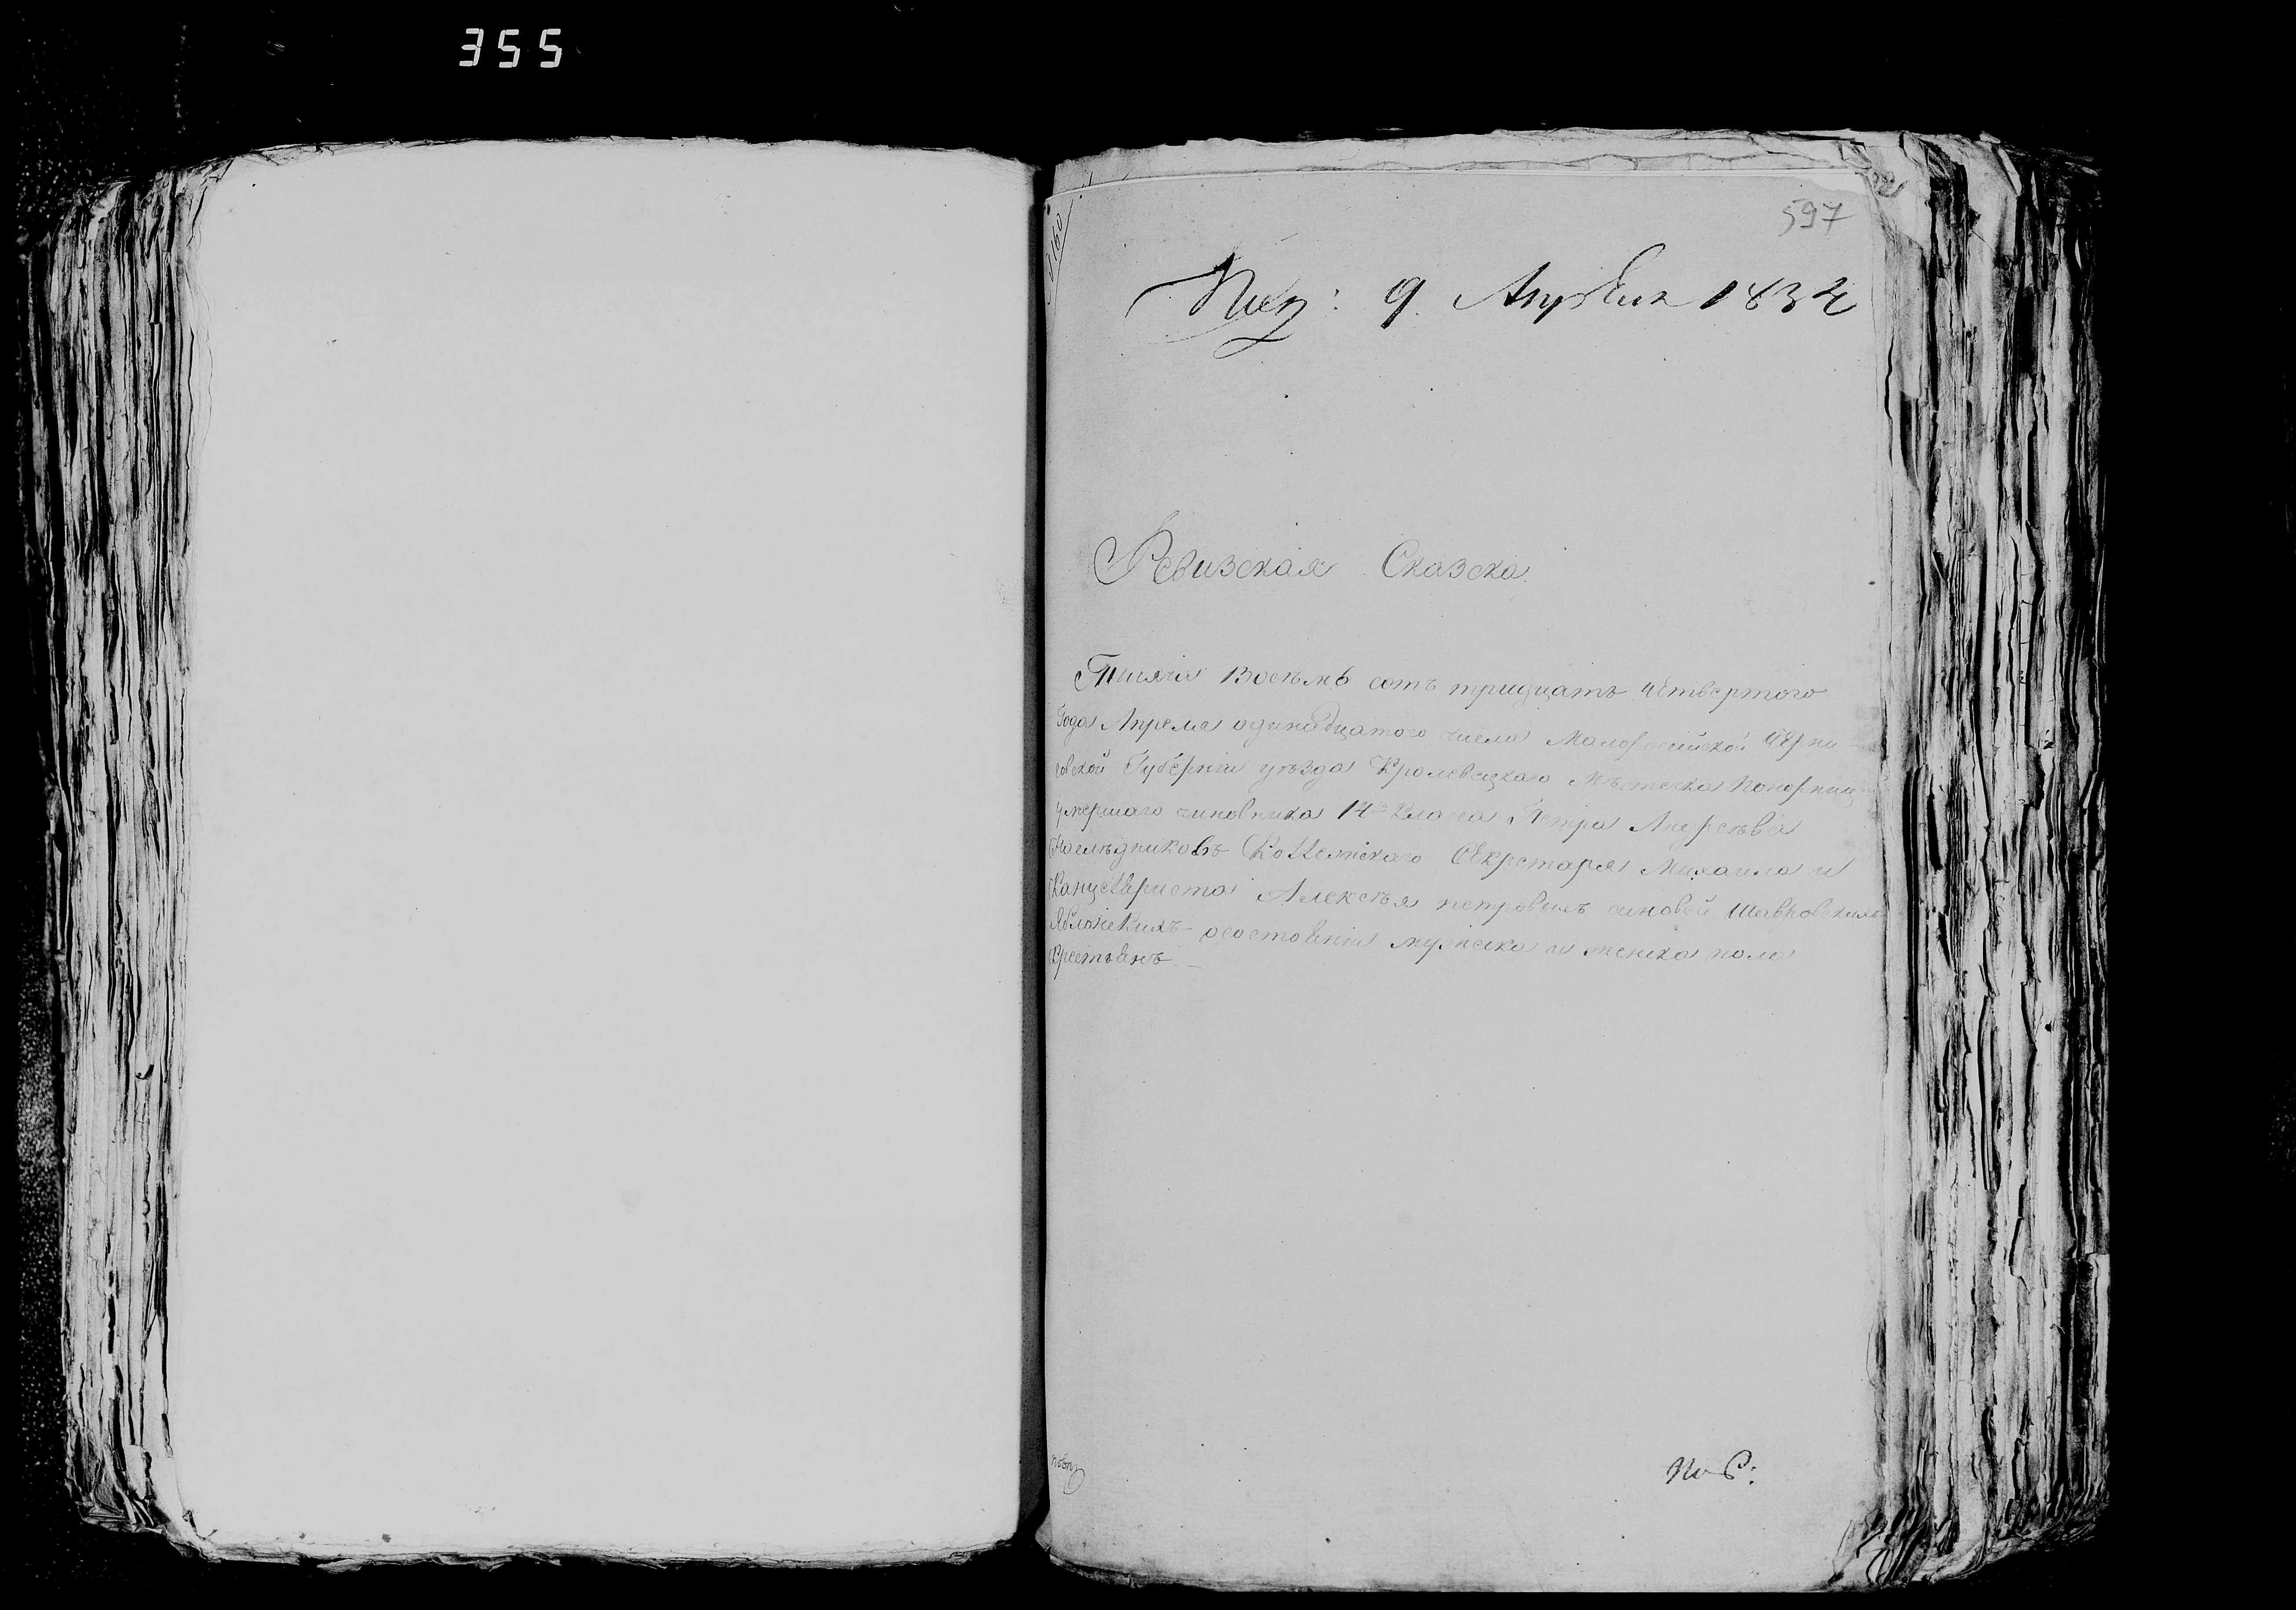 355
597
160
9. Апреля 1834
Ревизская Сказска
Тысяча восемь сотъ тридцать четвертого
Года Апреля одинадцатого числа Малоросийской Черни-
говской Губернии уезда Кролевецкаго местечка Понорниц
умершаго чиновника 14го Класса Петра Андреева
Наследниковъ Коллежскаго Секретаря Михаила и
Канцеляриста Алексея петровыхъ синовей
Яблонскихъ осостоянии мужеска и женска пола
Крестьянъ.